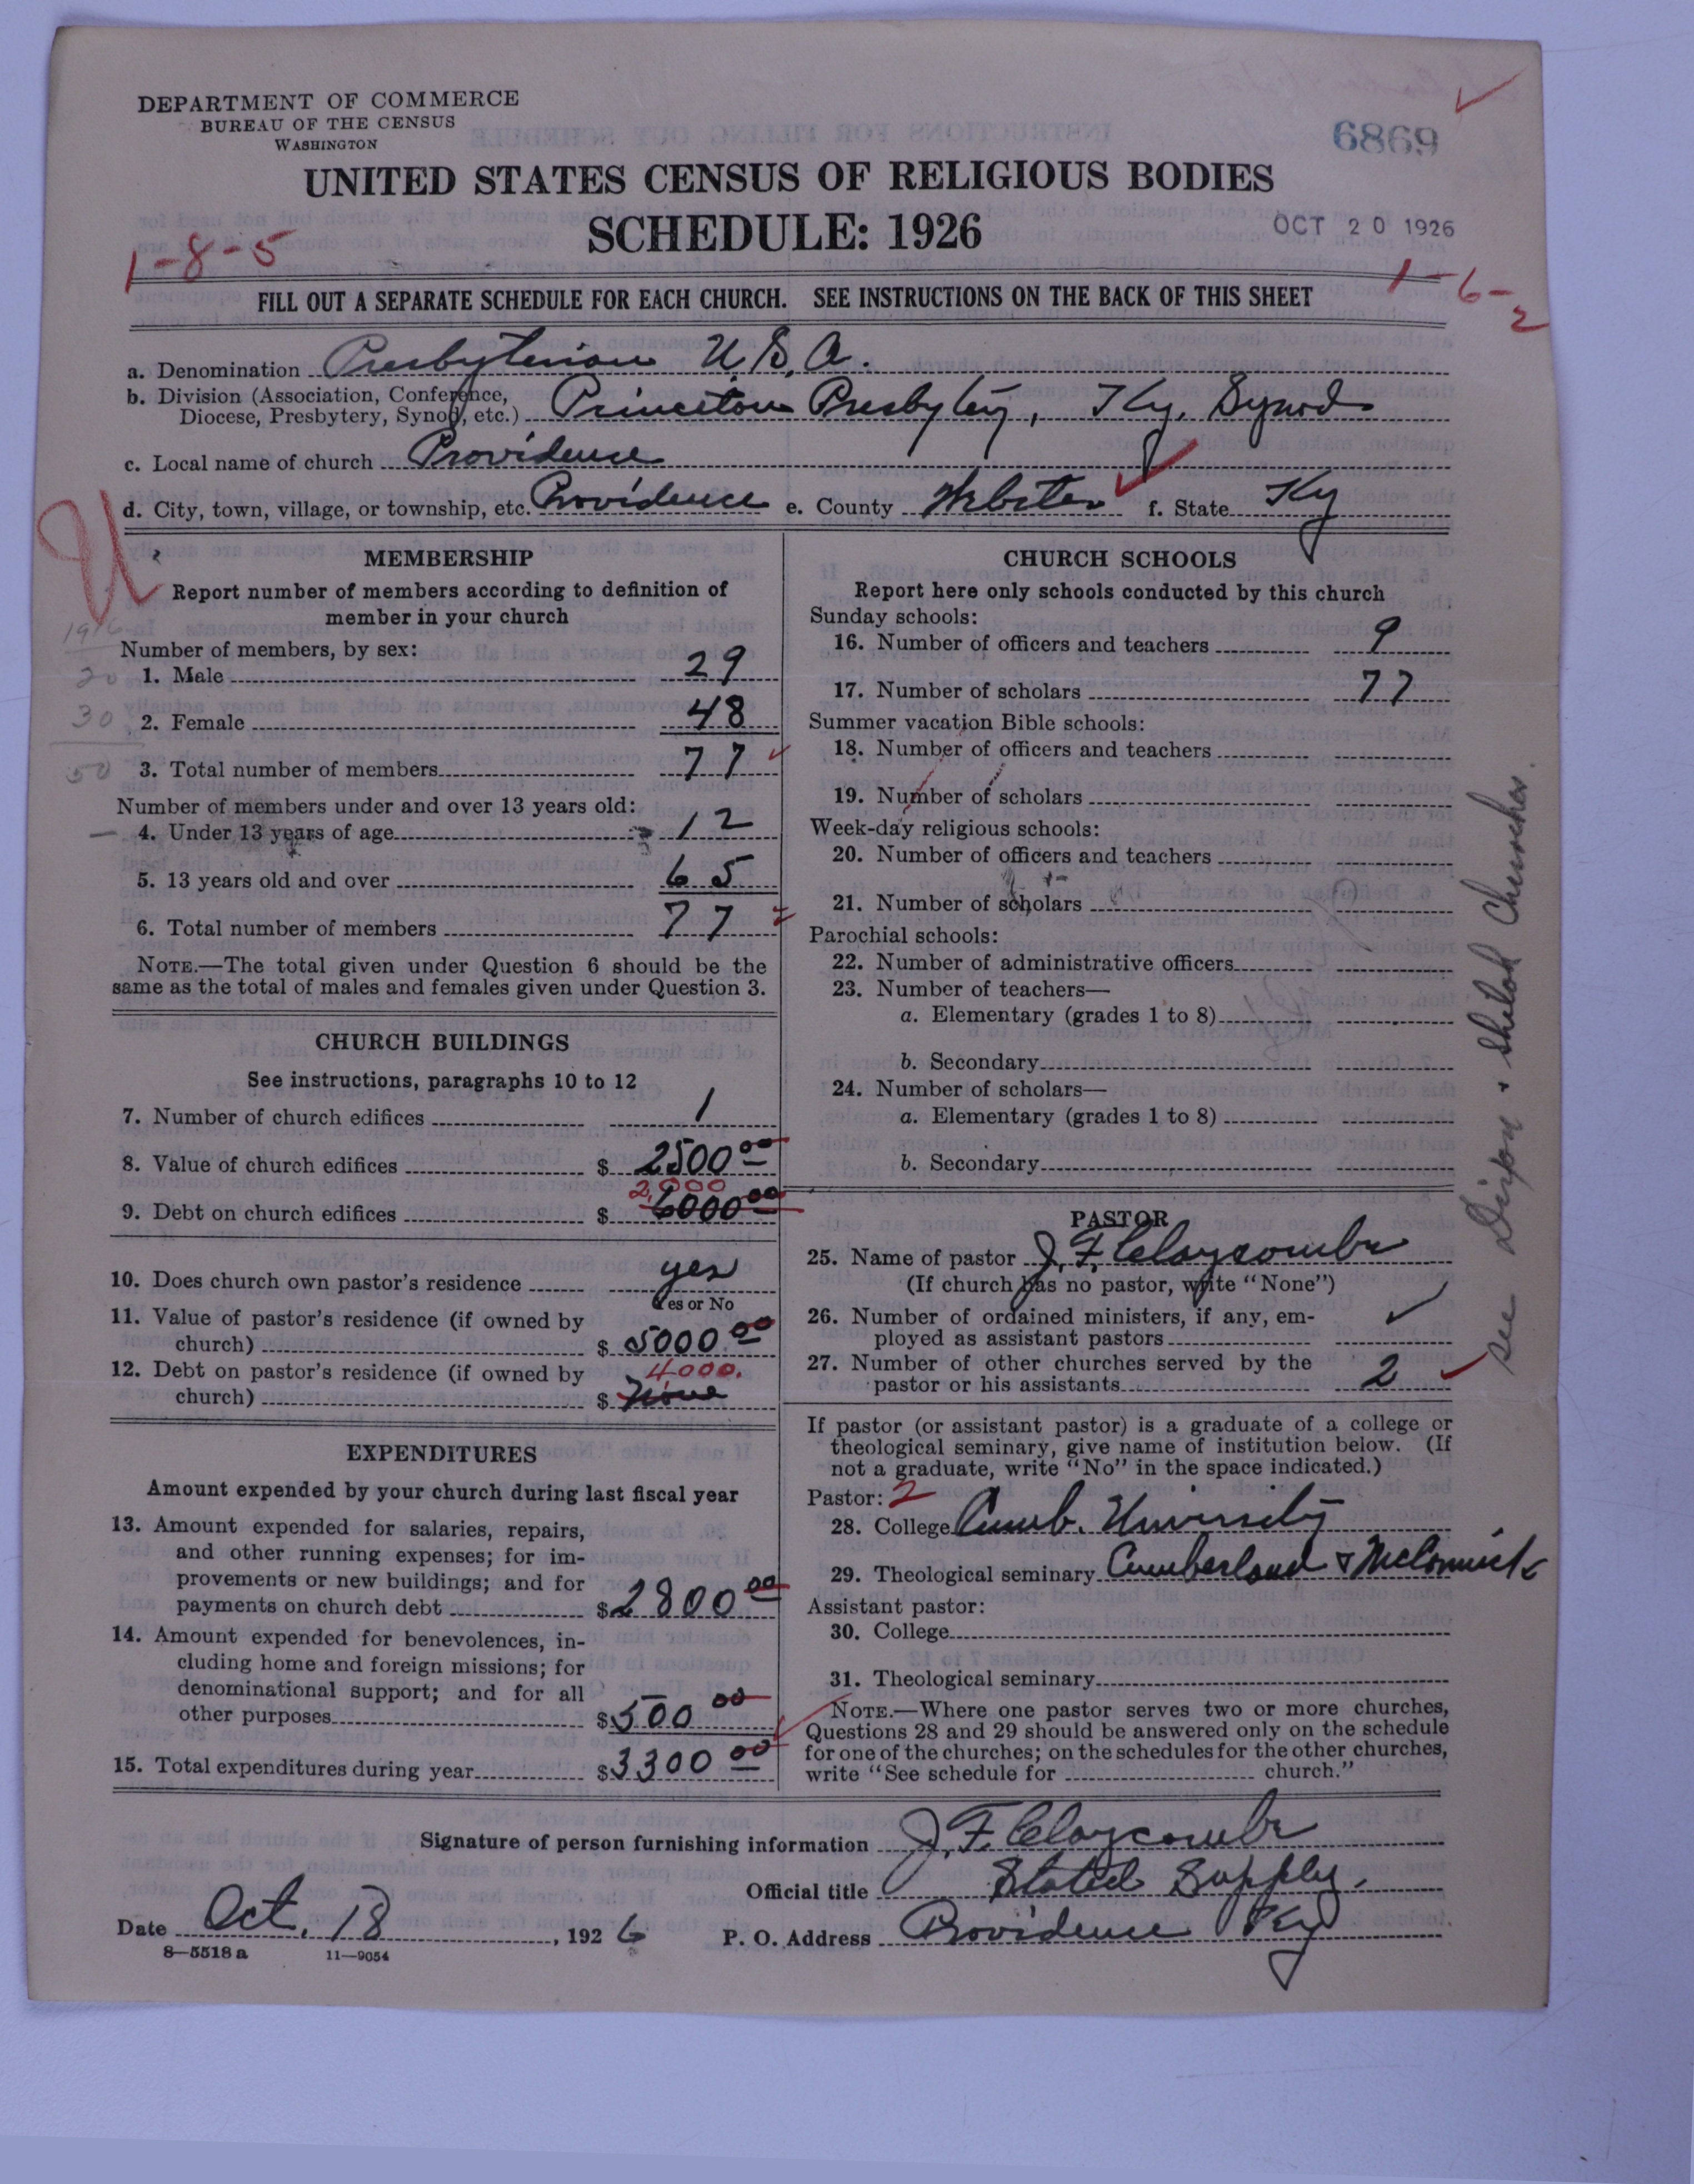 DEPARTMENT OF COMMERCE
BUREAU OF THE CENSUS
WASHINGTON
6869
UNITED STATES CENSUS OF RELIGIOUS BODIES
SCHEDULE: 1926
OCT 20 1926
1-8-5
1-6-2
FILL OUT A SEPARATE SCHEDULE FOR EACH CHURCH. SEE INSTRUCTIONS ON THE BACK OF THIS SHEET
a. Denomination Presbyterian U.S.A.
b. Division (Association, Conference,
Diocese, Presbytery, Synod, etc.) Princeton Presbytery, Ky. Synod
c. Local name of church Providence
d. City, town, village, or township, etc. Providence e. County Webster f. State Ky
MEMBERSHIP
Report number of members according to definition of
member in your church
1916
Number of members, by sex:
20 1. Male 29
30 2. Female 48
50 3. Total number of members 77
Number of members under and over 13 years old:
4. Under 13 years of age 12
5. 13 years old and over 65
6. Total number of members 77
NOTE.—The total given under Question 6 should be the
same as the total of males and females given under Question 3.
CHURCH BUILDINGS
See instructions, paragraphs 10 to 12
7. Number of church edifices 1
8. Value of church edifices $ 2500 00
2,000
9. Debt on church edifices $ 6000 00
10. Does church own pastor's residence yes
Yes or No
11. Value of pastor's residence (if owned by
church) $ 5000 00
12. Debt on pastor's residence (if owned by 4000.
church) $ None
EXPENDITURES
Amount expended by your church during last fiscal year
13. Amount expended for salaries, repairs,
and other running expenses; for im-
provements or new buildings; and for
payments on church debt $ 2800 00
14. Amount expended for benevolences, in-
cluding home and foreign missions; for
denominational support; and for all
other purposes $ 500 00
15. Total expenditures during year $ 3300 00
CHURCH SCHOOLS
Report here only schools conducted by this church
Sunday schools:
16. Number of officers and teachers 9
17. Number of scholars 77
Summer vacation Bible schools:
18. Number of officers and teachers
19. Number of scholars
Week-day religious schools:
20. Number of officers and teachers
21. Number of scholars
Parochial schools:
22. Number of administrative officers
23. Number of teachers—
a. Elementary (grades 1 to 8)
b. Secondary
24. Number of scholars—
a. Elementary (grades 1 to 8)
b. Secondary
PASTOR
25. Name of pastor J. F. Claycombe
(If church has no pastor, write "None")
26. Number of ordained ministers, if any, em-
ployed as assistant pastors
27. Number of other churches served by the
pastor or his assistants 2
If pastor (or assistant pastor) is a graduate of a college or
theological seminary, give name of institution below. (If
not a graduate, write "No" in the space indicated.)
Pastor: 2
28. College Cumb. University
29. Theological seminary Cumberland & McCormick
Assistant pastor:
30. College
31. Theological seminary
NOTE.—Where one pastor serves two or more churches,
Questions 28 and 29 should be answered only on the schedule
for one of the churches; on the schedules for the other churches,
write "See schedule for church."
see Dixon & Shiloh Churches.
Signature of person furnishing information J. F. Claycombe
Official title Stated Supply.
Date Oct. 18, 1926 P. O. Address Providence Ky
8—5518a 11—9054